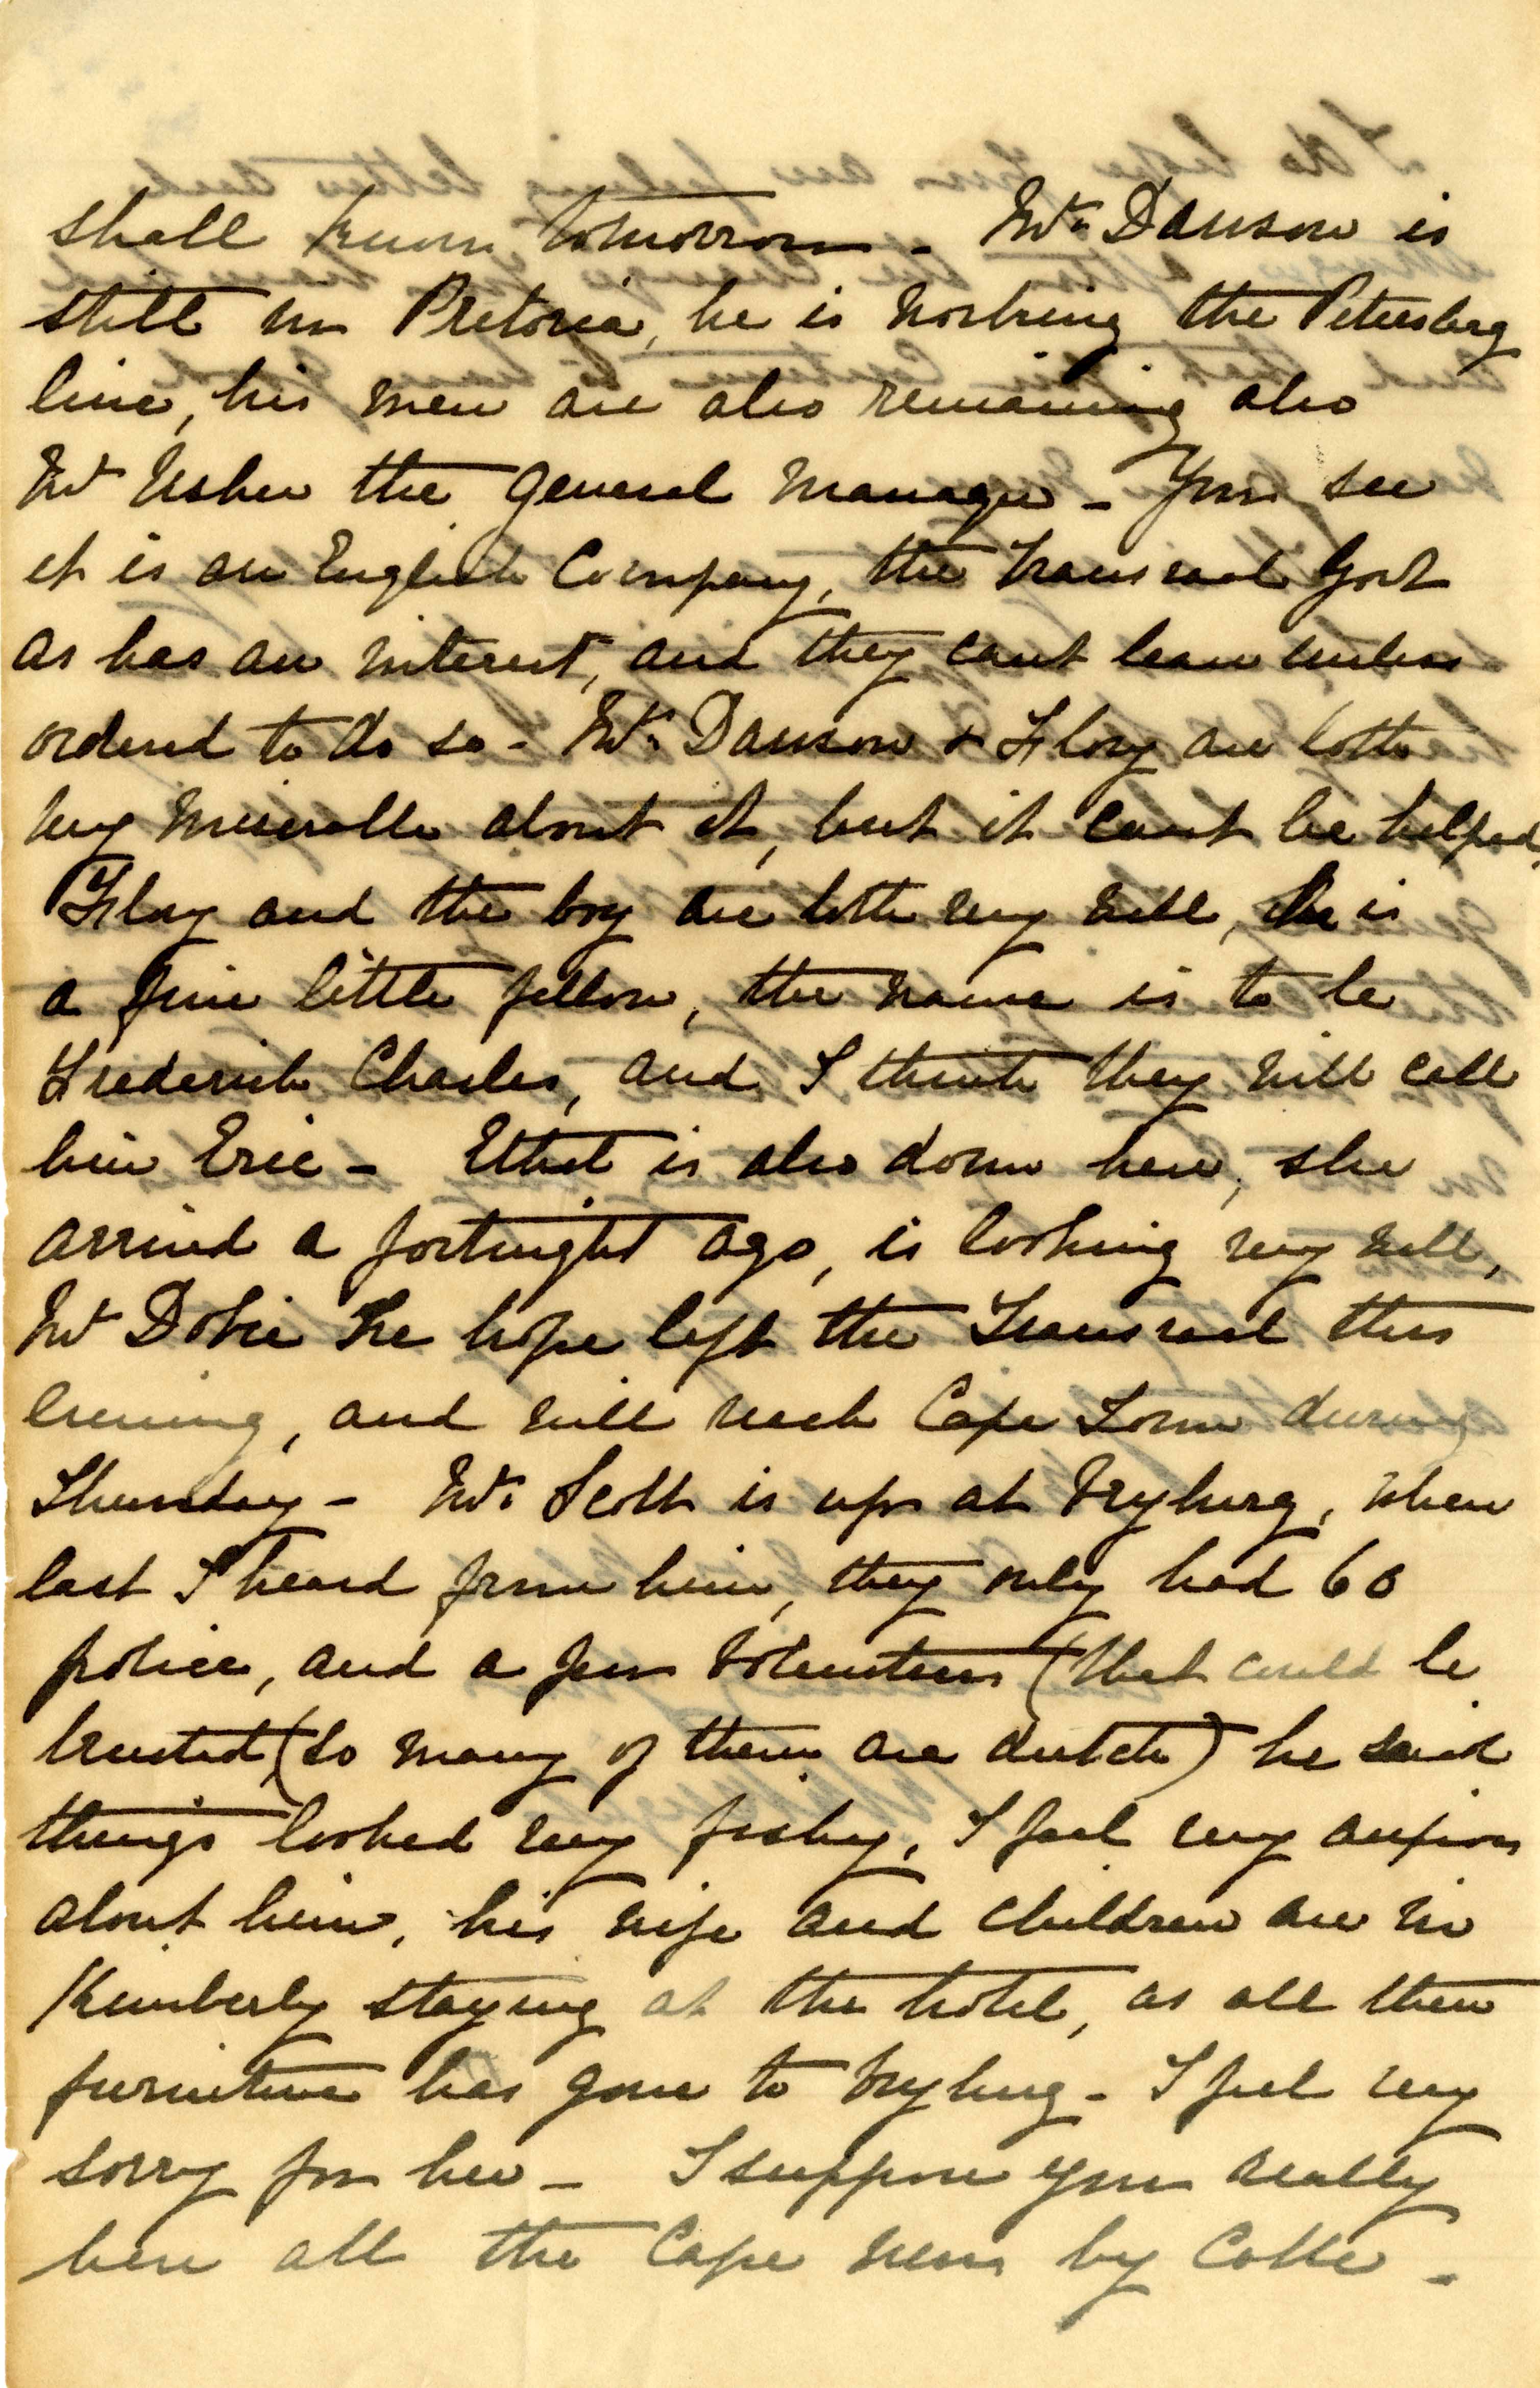 shall know tomorrow - Mr. Dawson is
still in Pretoria, he is working the Petersberg
line, his men are also remaining also
Mr Usher the general manager - You see
it is an English Company, the Transvaal Govt
as has an interest, and they cant leave unless
ordered to do so - Mr. Dawson & Flory are both
very miserable about it, but it cant be helped,
Flory and the boy are both very well, he is
a fine little fellow, the name is to be
Frederick Charles, and I think they will call
him Eric - Ethel is also down here, she
arrived a fortnight ago, is looking very well,
Mr Dobie we hope left the Transvaal this
evening, and will reach Cape Town during
Thursday - Mr. Scott is up at Vryburg, when
last I heard from him, they only had 60
police, and a few Volunteers (that could be
trusted (so many of them are dutch) he said
things looked very fishy, I feel very anxious
about him, his wife and children are in
Kimberly staying at the hotel, as all their
furniture has gone to Vryburg - I feel very
sorry for her - I suppose you really
here all the Cape news by Cable -